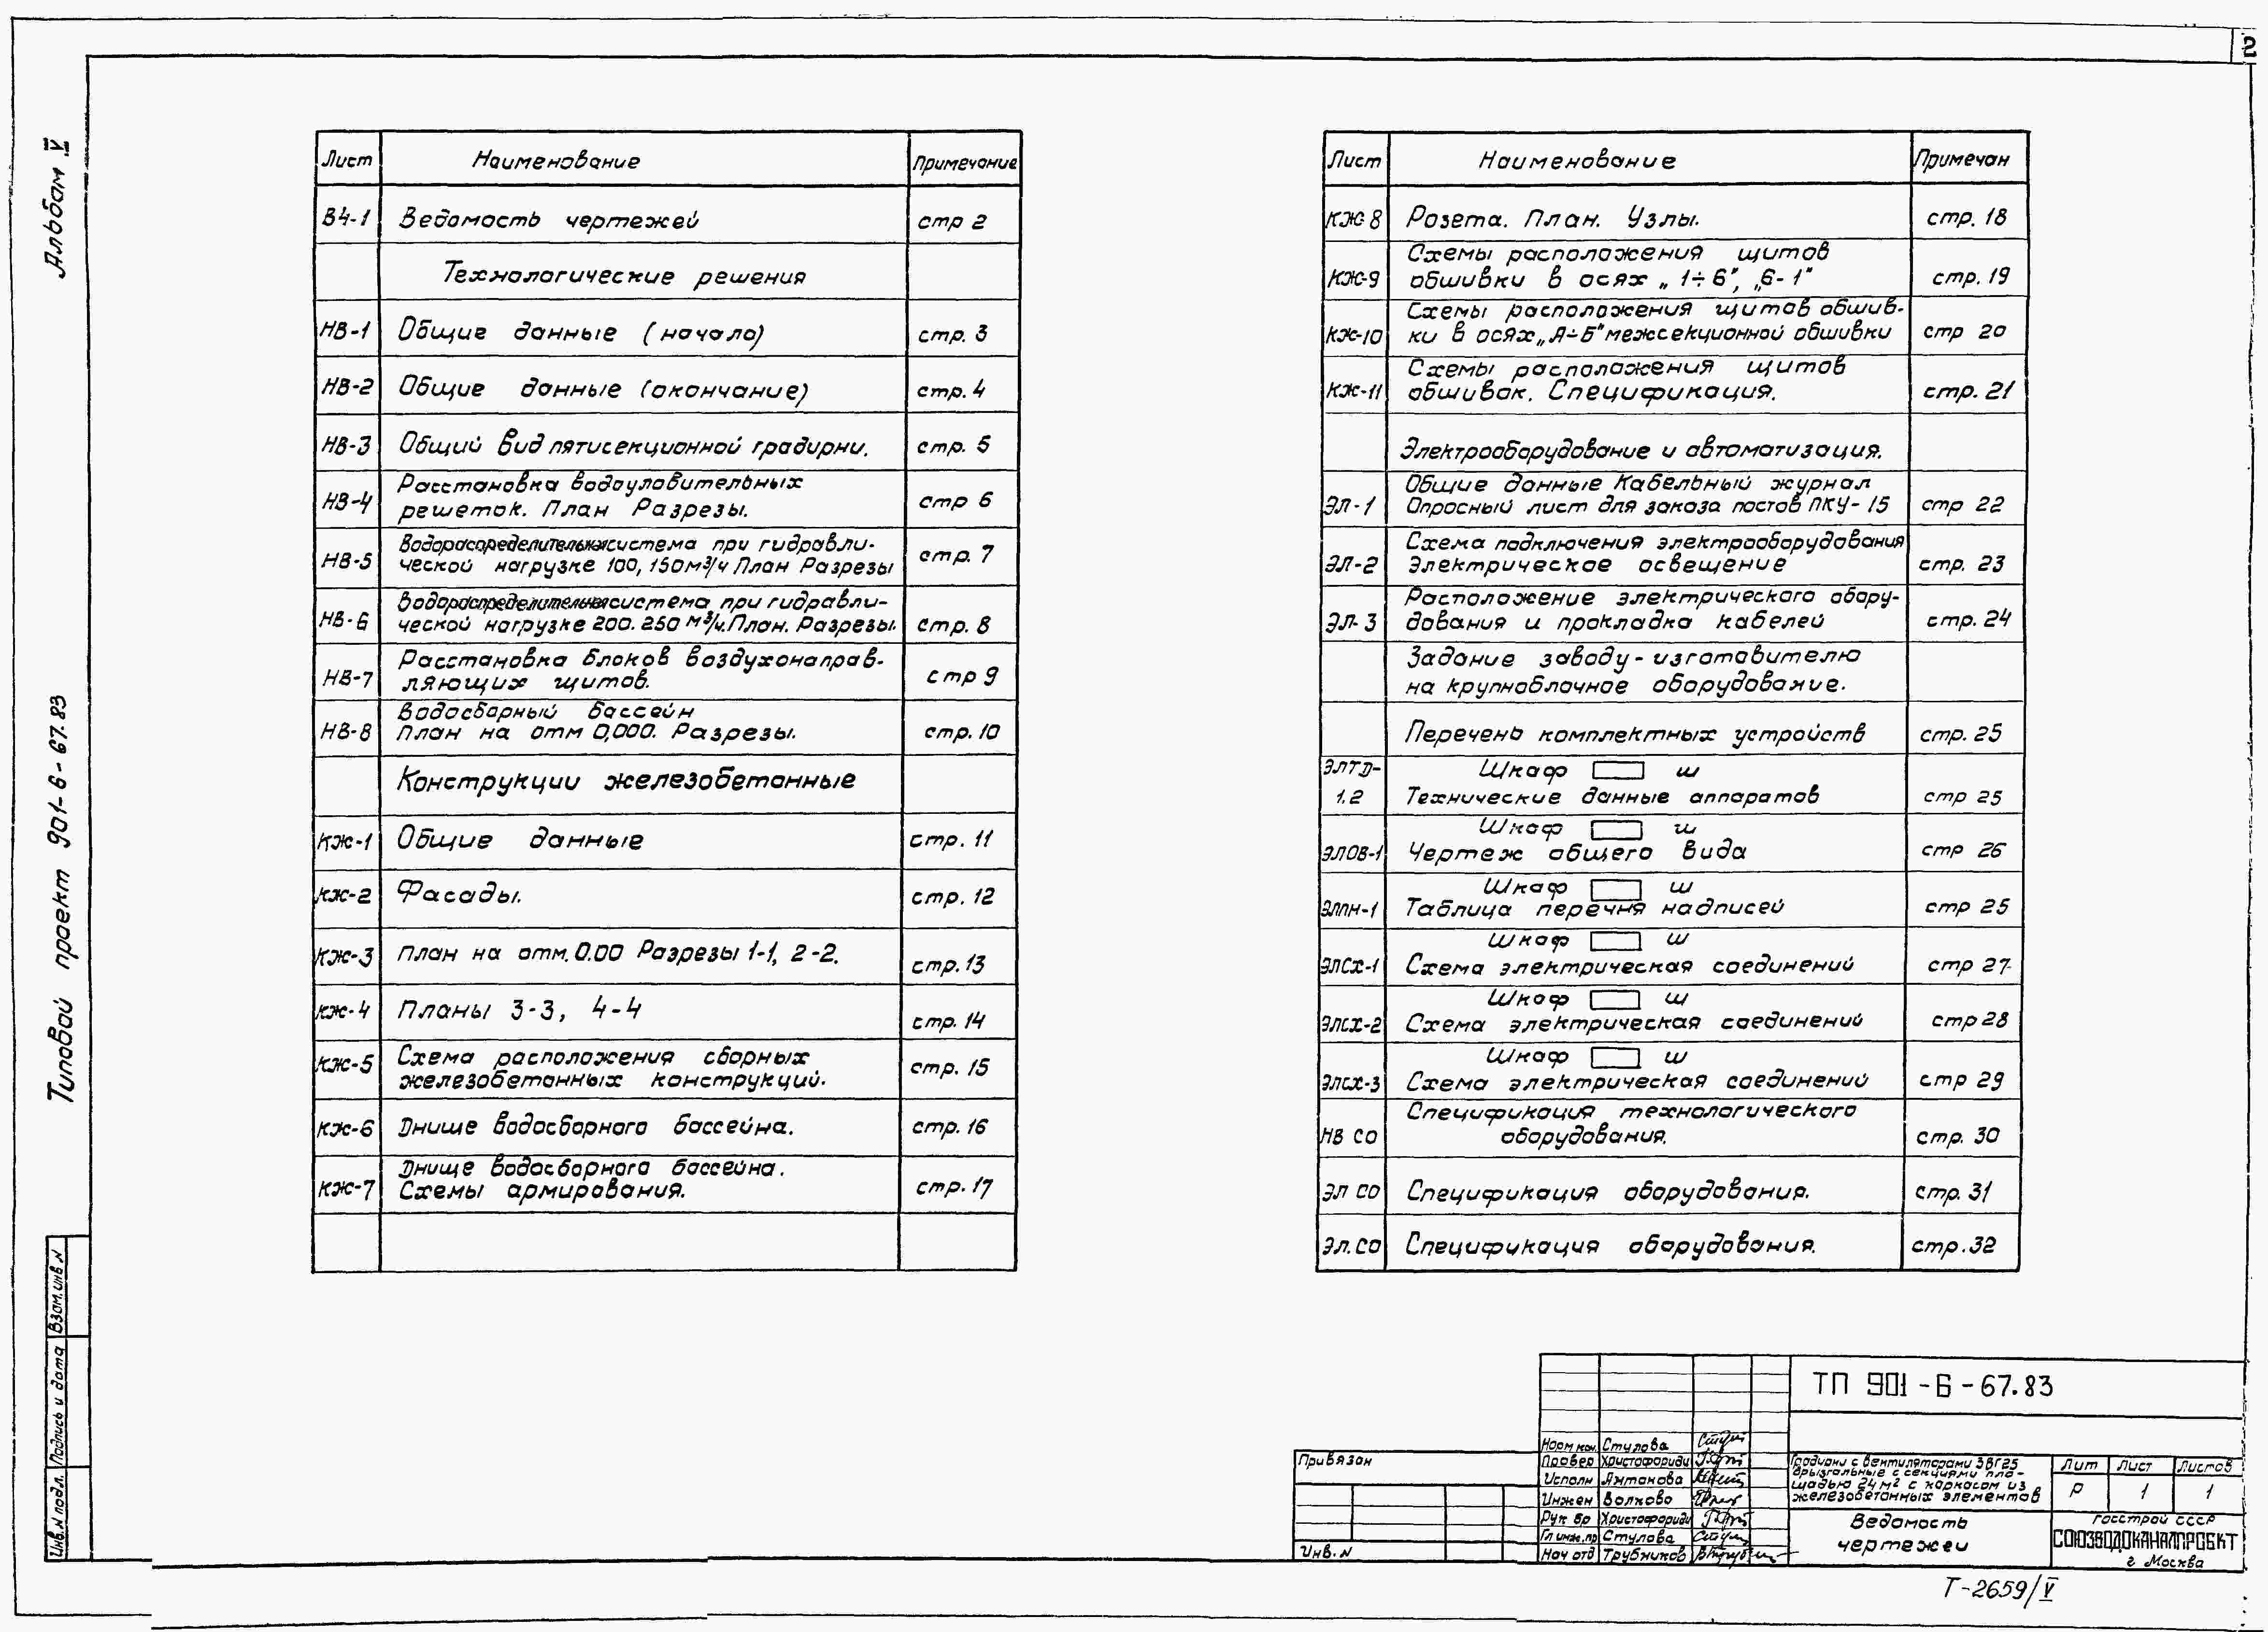 2
Альбом V
Типовой проект 901-6-67.83
Инв.N подл. Подпись и дата Взам.инв N
Лист Наименование Примечание
ВЧ-1 Ведомость чертежей стр 2
Технологические решения
НВ-1 Общие данные (начало) стр. 3
НВ-2 Общие данные (окончание) стр. 4
НВ-3 Общий вид пятисекционной градирни. стр. 5
Расстановка водоуловительных
НВ-4 решеток. План Разрезы. стр 6
Водораспределительная система при гидравли-
НВ-5 ческой нагрузке 100, 150м³/ч План Разрезы стр. 7
Водораспределительная система при гидравли-
НВ-6 ческой нагрузке 200. 250 м³/ч. План. Разрезы. стр. 8
Расстановка блоков воздухонаправ-
НВ-7 ляющих щитов. стр 9
Водосборный бассейн
НВ-8 План на отм 0,000. Разрезы. стр. 10
Конструкции железобетонные
КЖ-1 Общие данные стр. 11
КЖ-2 Фасады. стр. 12
КЖ-3 План на отм. 0.00 Разрезы 1-1, 2-2. стр. 13
КЖ-4 Планы 3-3, 4-4 стр. 14
КЖ-5 Схема расположения сборных
железобетонных конструкций. стр. 15
КЖ-6 Днище водосборного бассейна. стр. 16
Днище водосборного бассейна.
КЖ-7 Схемы армирования. стр. 17
Лист Наименование Примечан
КЖ-8 Розета. План. Узлы. стр. 18
Схемы расположения щитов
КЖ-9 обшивки в осях „1÷6", „6-1" стр. 19
Схемы расположения щитов обшив-
КЖ-10 ки в осях „А÷Б" межсекционной обшивки стр 20
Схемы расположения щитов
КЖ-11 обшивок. Спецификация. стр. 21
Электрооборудование и автоматизация.
Общие данные Кабельный журнал
ЭЛ-1 Опросный лист для заказа постов ПКУ-15 стр 22
Схема подключения электрооборудования
ЭЛ-2 Электрическое освещение стр. 23
Расположение электрического обору-
ЭЛ-3 дования и прокладка кабелей стр. 24
Задание заводу-изготовителю
на крупноблочное оборудование.
Перечень комплектных устройств стр. 25
ЭЛТД- Шкаф ш
1.2 Технические данные аппаратов стр 25
Шкаф ш
ЭЛОВ-1 Чертеж общего вида стр 26
Шкаф ш
ЭЛПН-1 Таблица перечня надписей стр 25
Шкаф ш
ЭЛСХ-1 Схема электрическая соединений стр 27
Шкаф ш
ЭЛСХ-2 Схема электрическая соединений стр 28
Шкаф ш
ЭЛСХ-3 Схема электрическая соединений стр 29
Спецификация технологического
НВ СО оборудования. стр. 30
ЭЛ СО Спецификация оборудования. стр. 31
ЭЛ.СО Спецификация оборудования. стр. 32
Привязан
Инв. N
Норм кон. Стулова
Провер Христофориди
Исполн Антонова
Инжен Волкова
Рук бр Христофориди
Гл инж.пр Стулова
Нач отд Трубников
ТП 901-6-67.83
Градирни с вентиляторами 3ВГ25
брызгальные с секциями пло-
щадью 24 м² с каркасом из
железобетонных элементов
Лит Лист Листов
Р 1 1
Ведомость
чертежей
Госстрой СССР
СОЮЗВОДОКАНАЛПРОЕКТ
г Москва
Т-2659/V